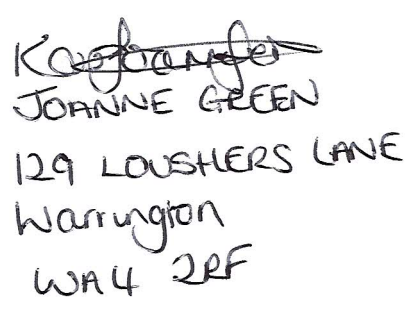 JOANNE GREEN
129 LOUSHERS LANE
Warrington
WA4 2RF